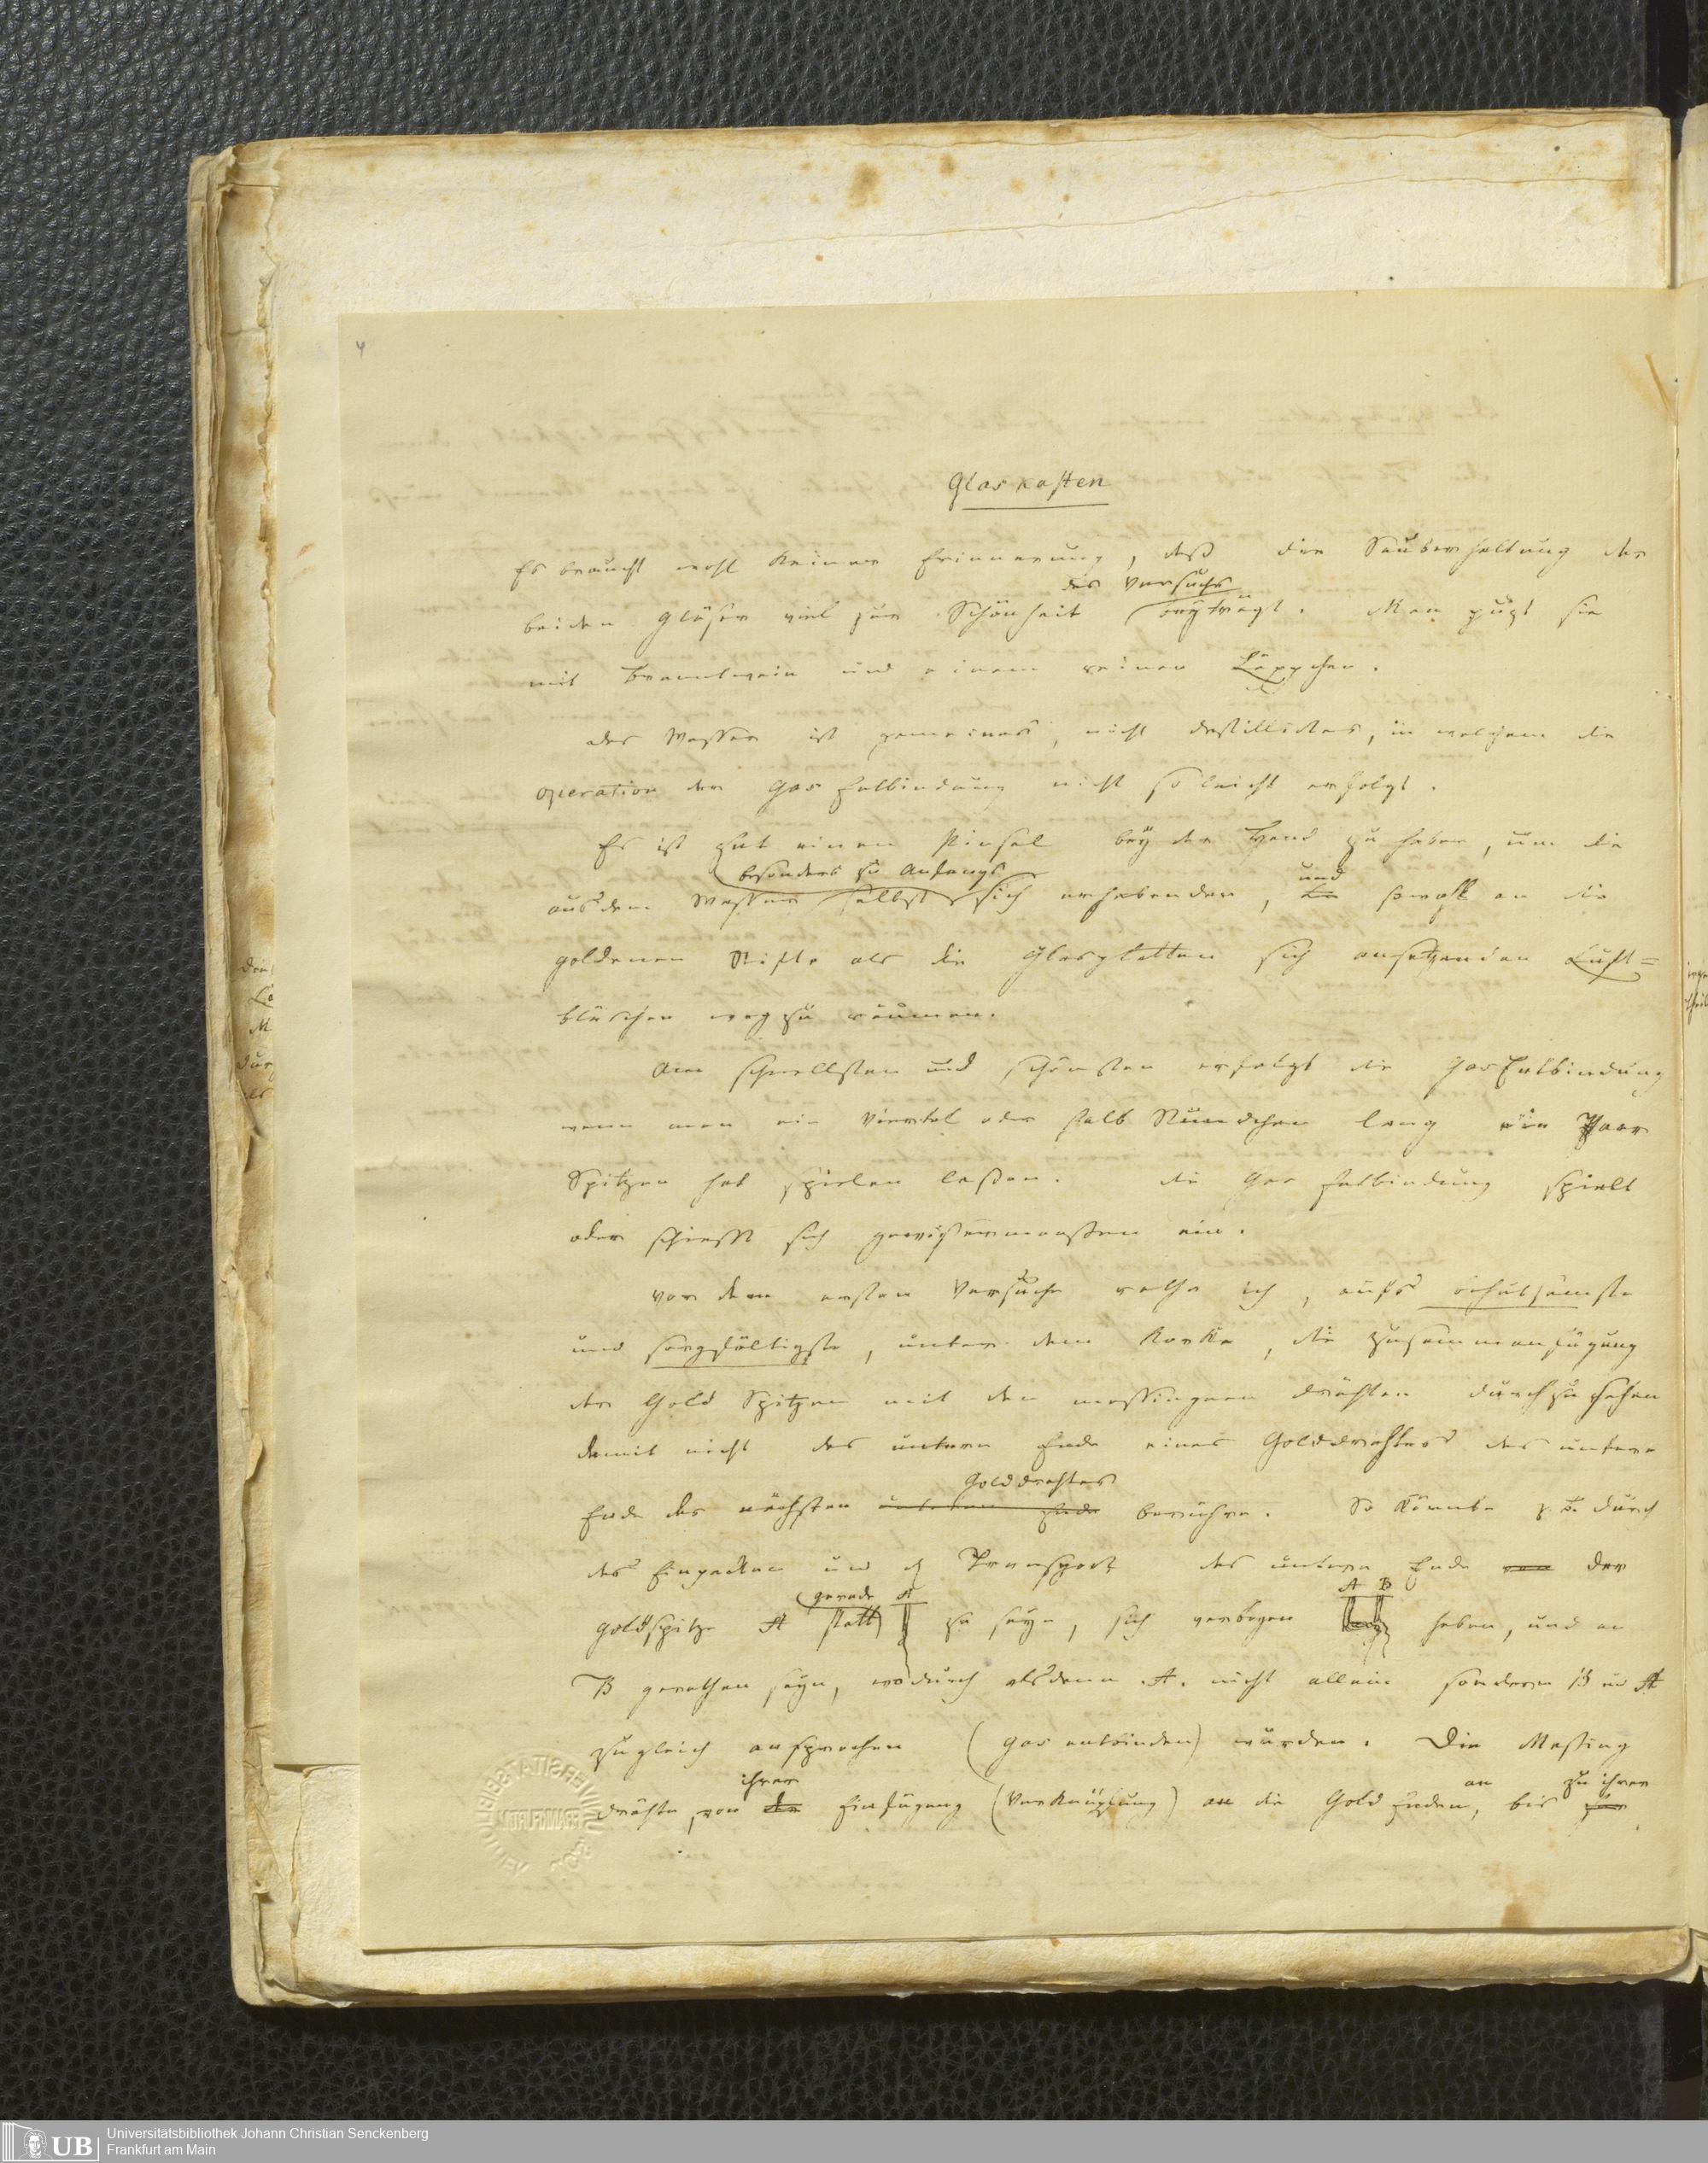 4
Glaskasten
Es braucht wohl keiner Erinnerung, daß die Sauberhaltung der
des Versuchs
beiden Gläser viel zur Schönheit beyträgt. Man puzt sie
mit Brantwein und einem reinen Läppchen.
das Wasser ist gemeines, nicht destillirtes, in welchem die
operation der Gas Entbindung nicht so leicht erfolgt.
Es ist gut einen Pinsel bey der Hand zu haben, um die
besonders zu Anfangs und
aus dem Wasser selbst sich erhebenden, sowohl an die
goldenen Stifte als die Glasplatten sich ansetzenden Luft=
bläschen weg zu räumen.
Am schnellsten und schönsten erfolgt die Gas Entbindung
wenn man ein Viertel oder halb Stündchen lang ein Paar
Spitzen hat spielen laßen. die Gas Entbindung spielt
oder schießt sich gewißermaaßen ein.
vor dem ersten Versuche rathe ich, aufs behutsamste
und sorgfältigste, unter dem Korke, die Zusammenfügung
der Gold Spitzen mit den messingnen dräthen durchzusehen
damit nicht das untere Ende eines Golddrathes das untere
Golddrathes
Ende des nächsten unteren Ende berühre. So könnte z. B. durch
das Einpacken und d Transport das untere Ende von der
gerade A A B
Goldspitze A statt zu seyn, sich verbogen haben, und an
B gerathen seyn, wodurch alsdann A. nicht allein sondern B und A
zugleich ansprechen (Gas entbinden) würden. Die Messing
ihrer an zu ihrer
dräthe, von der Einfügung (Verknüpfung) an die Gold Enden, bis zur
Universitätsbibliothek Johann Christian Senckenberg
Frankfurt am Main
UB